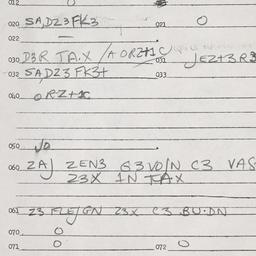 012
020 SA,DZ3FK3 021 O
022 —
030 D3R TA.X / A ORZ+1C 031 JEZ+3R3
032 SAD23FK3+ 033
040 ORZ+1C
050 JO
060 ZAJ ZEN3 G3VO/N C3 VAS
23X IN TAX
061 23 FLEJGN 23X C3 BU.DN
070 O
071 O 072 O